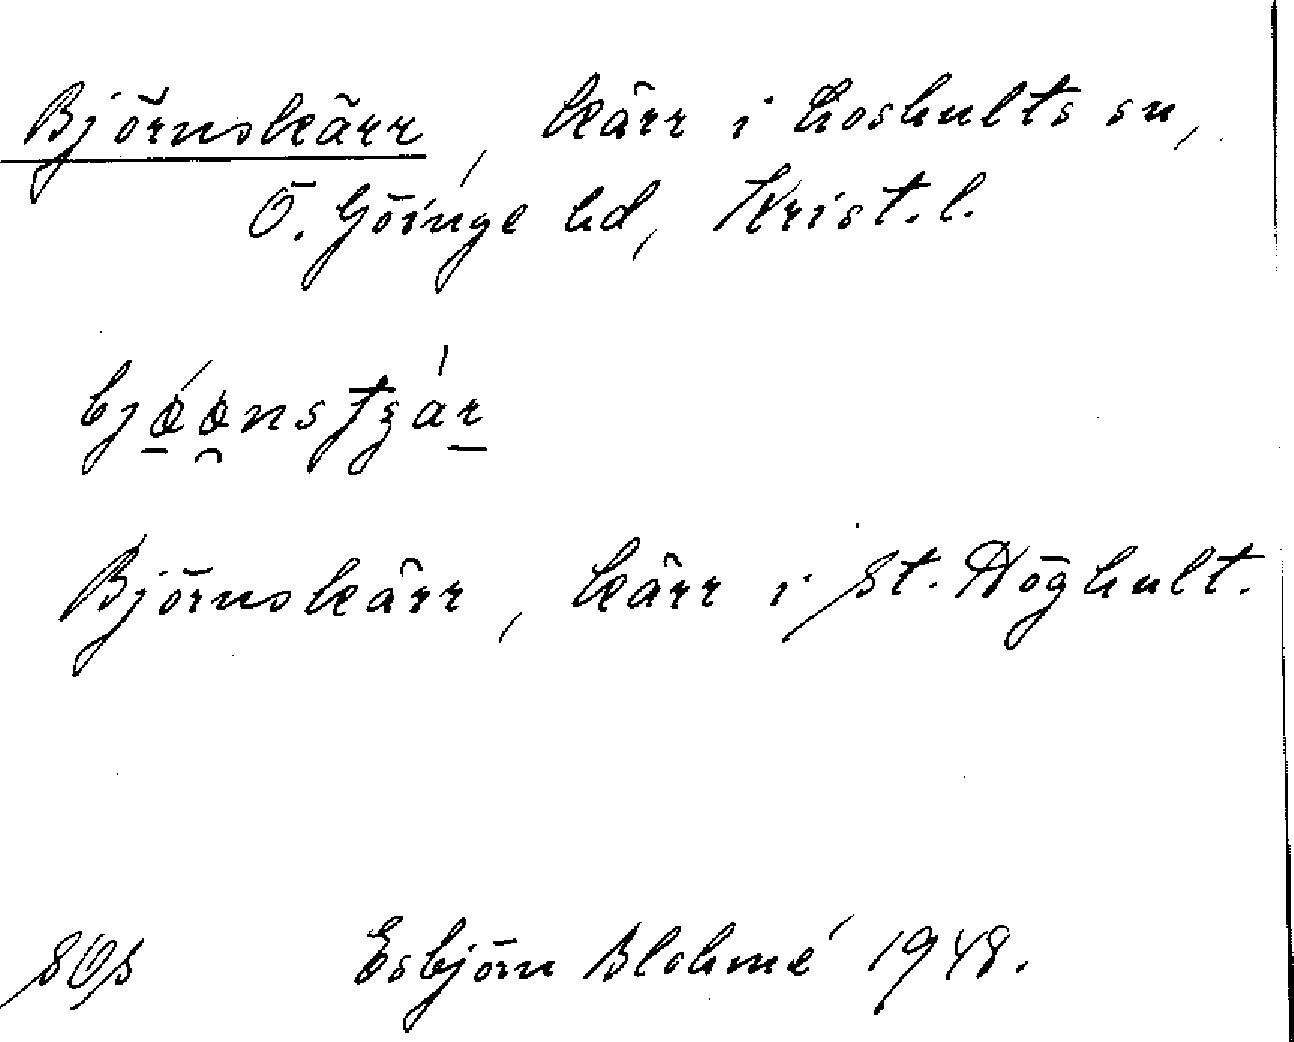 Björnskärr, kärr i Loshults sn,
Ö. Göinge hd, Krist. l.
Björnskärr, kärr i St. Höghult.
Esbjörn Blohmé 1948.